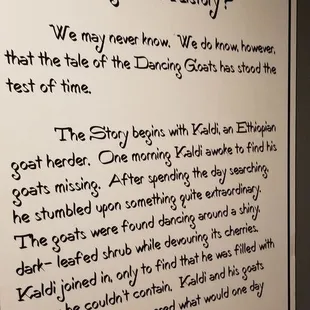 story?
We may never know. We do know, however,
that the tale of the Dancing Goats has stood the
test of time.
The Story begins with Kaldi, an Ethiopian
goat herder. One morning Kaldi awoke to find his
goats missing. After spending the day searching,
he stumbled upon something quite extraordinary.
The goats were found dancing around a shiny,
dark-leafed shrub while devouring its cherries.
Kaldi joined in, only to find that he was filled with
he couldn't contain. Kaldi and his goats
what would one day